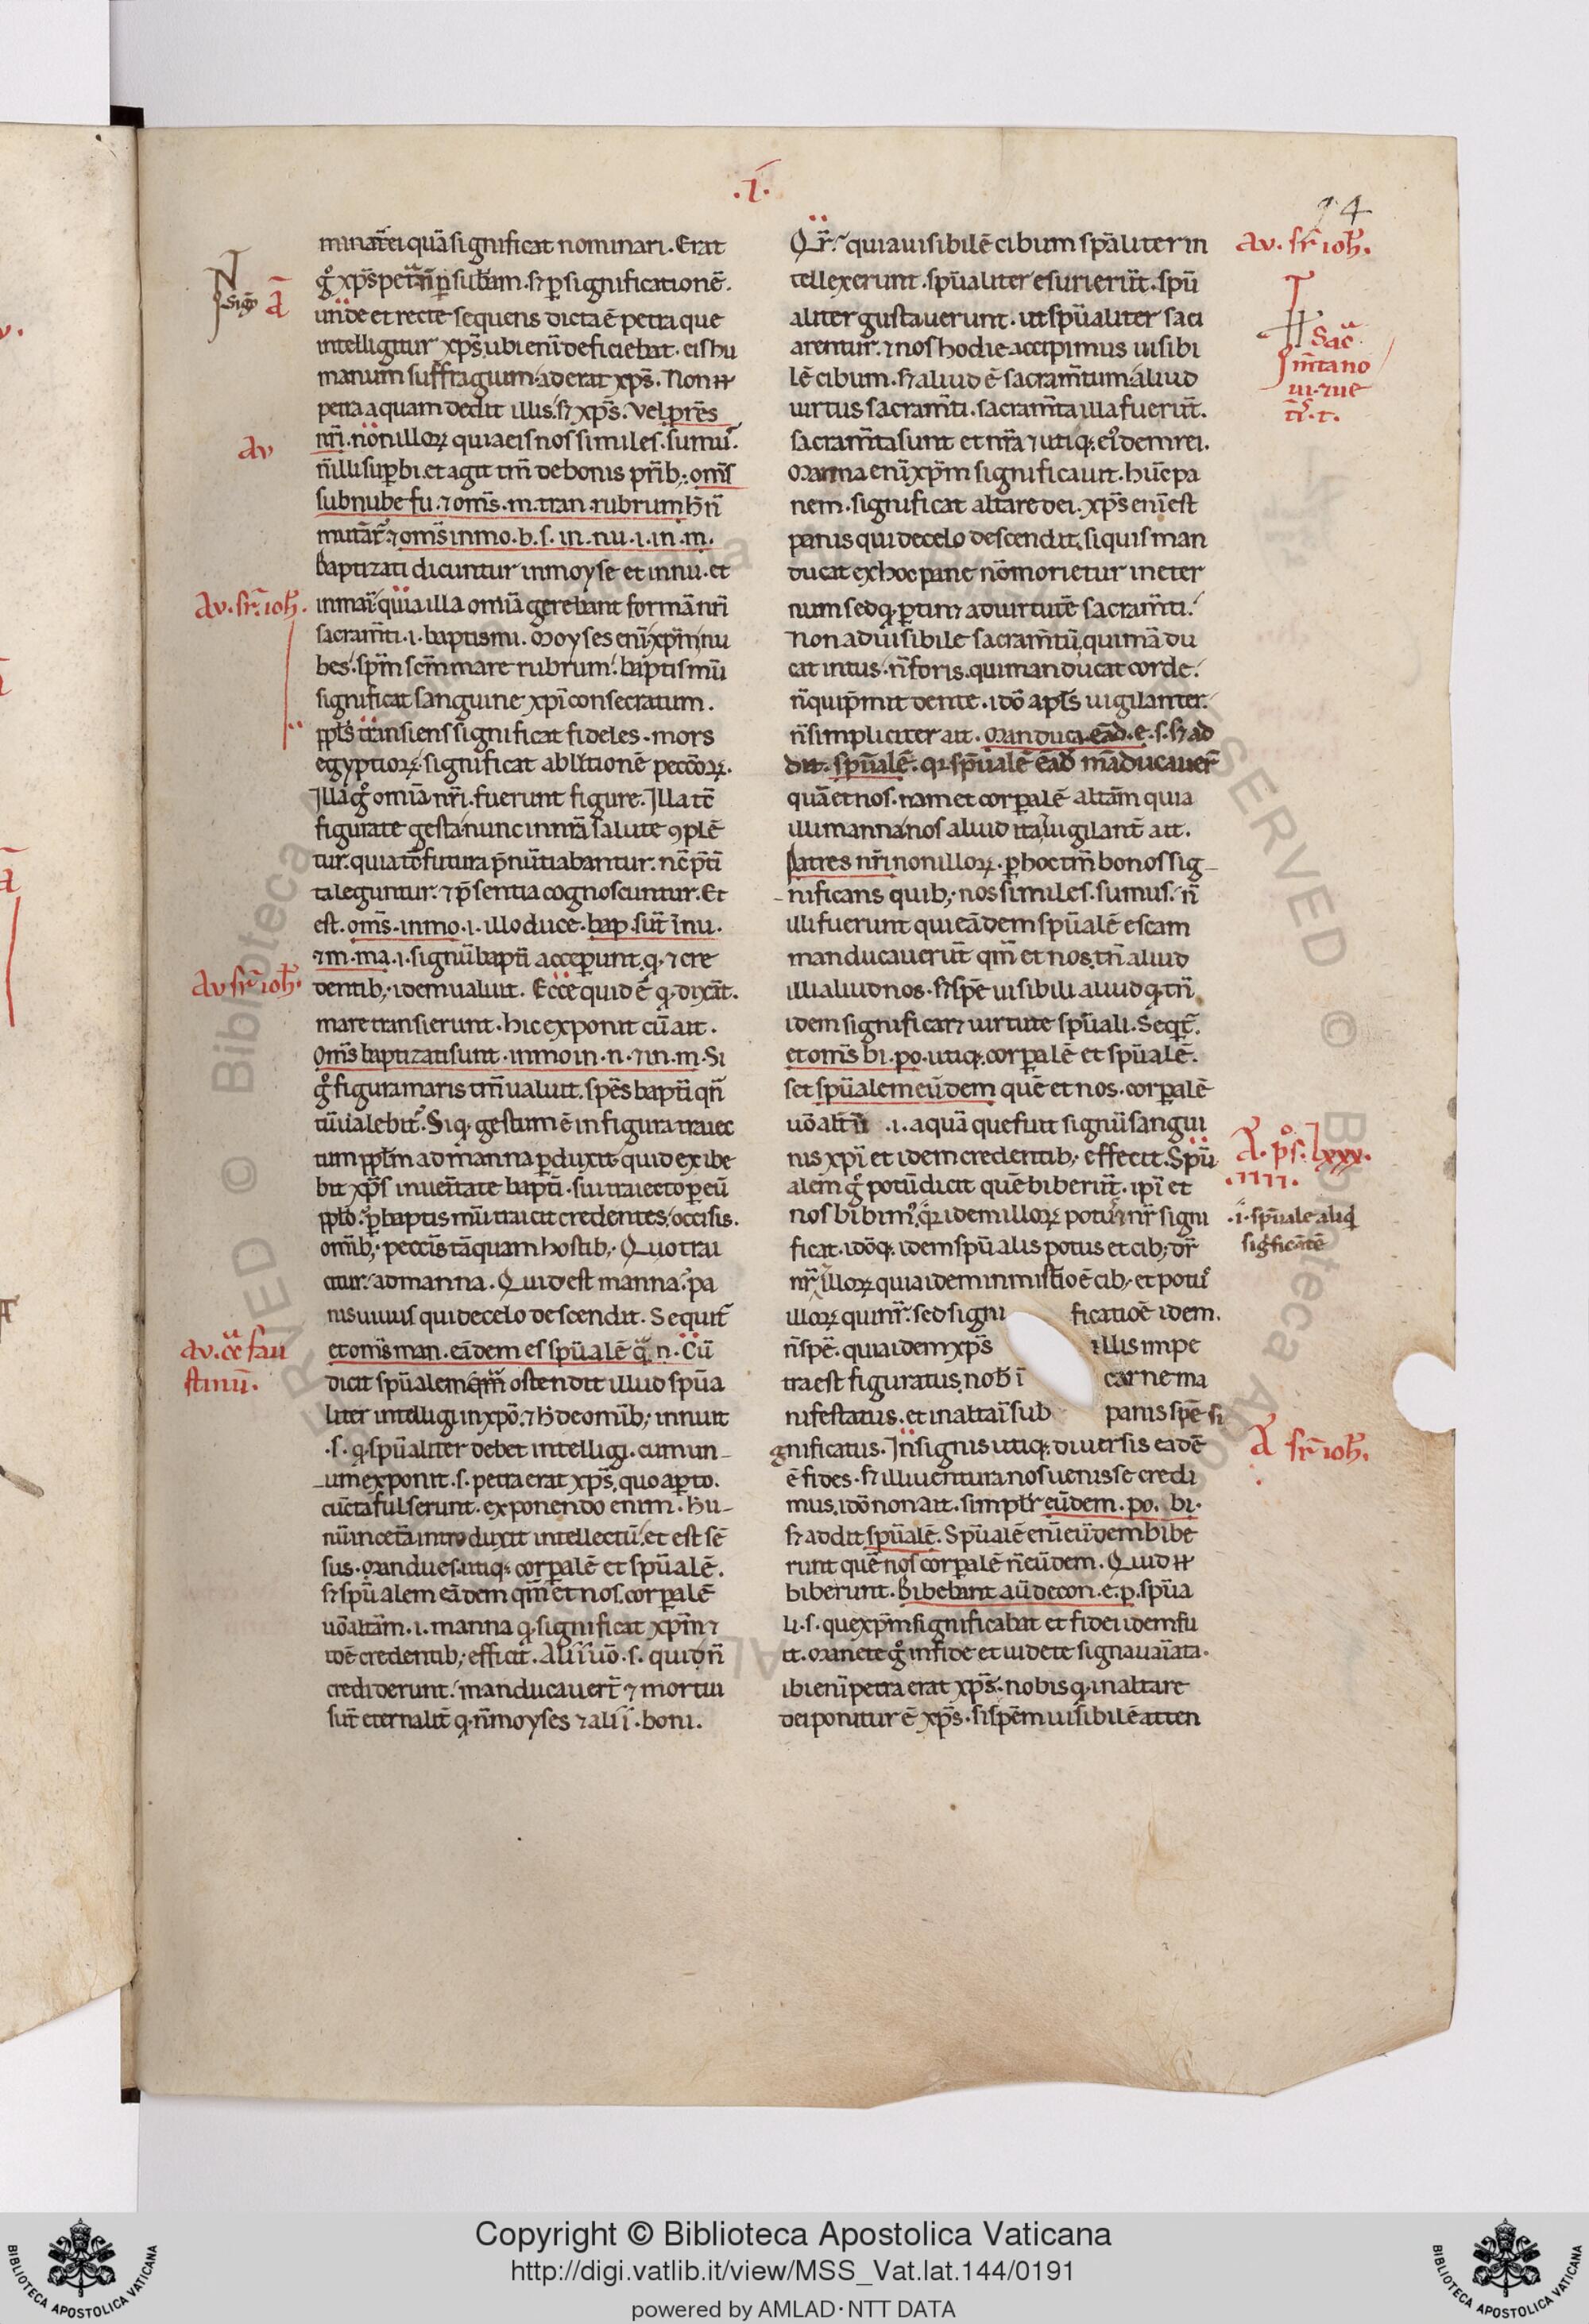 .I.
94
minat̄ ei quā significat nominari. Erat
gͦ xp̄s petra n̄ p̱ subam. sꝫ p̱ significationē.
unde et recte sequens dicta ē petra que
intelligitur xp̄s. ubi eni deficiebat. eis hu
manum suffragium. aderat xp̄s. Non
petra aquam dedit illis. sꝫ xp̄s. Vel pr̄es
nr̄i. non illoꝝ quia eis nos similes. sumus.
n̄ illi sup̱bi. et agit tm̄ de bonis pr̄ib; om̄s
sub nube fu. ⁊ om̄s. m. tran. rubrum
mutar̄. ⁊ om̄s in mo. b. s. in. nu. i. in. m.
Baptizati dicuntur in moyse et in nu. et
in mari. quia illa omīa gerebant formā nr̄i
sacram̄ti. i. baptismi. Moyses enī xp̄m nu
bes. sp̄m sc̄m mare rubrum. baptismū
significat sanguine xp̄i consecratum.
pp̄ls transiens significat fideles. mors
egyptioꝝ. significat ablutionē peccōꝝ.
Illa gͦ omīa nr̄i. fuerunt figure. Illa tc̄
figurate gesta nunc in nr̄a salute ꝯplē
tur. quia tc̄ futura p̄nūtiabantur. nc̄ p̄t̄i
ta leguntur. ⁊ p̄sentia cognoscuntur. Et
est. om̄s. in mo. i. illo duce. bap. sūt ī nu.
⁊ in. ma. i. signū bapt̄i accep̱unt. q. ⁊ cre
dentib; idem ualuit. Ecce quid ē q. dixit.
mare transierunt. hic exponit cū ait.
Om̄s baptizati sunt. in mo in. n. ⁊ in. m. Si
gͦ figura maris tm̄ ualuit. sp̄es bapt̄i qn̄
tū ualebit. Si q. gestum ē in figura traiec
tum pp̄lm ad manna p̱duxit. quid exibe
bit xp̄s in ueritate bapt̄i. sui traiecto p̱ eū
pp̄lo. p̱ baptismū traicit credentes. occisis.
om̄ib; peccīs tāquam hostib; Quo trai
citur. ad manna. Quid est manna. pa
nis uiuus qui de celo descendit. Sequit̄
et om̄s man. eādem es spūalē q. n. Cū
dicit spūalem qm̄ ostendit illud spūa
liter intelligi in xp̄o. ⁊ h̄ de omīb; innuit
.s. q. spūaliter debet intelligi. cum un
um exponit. s. petra erat xp̄s. quo ap̱to.
cūcta fulserunt. exponendo enim. hu
nū in cetera introduxit intellectū. et est sē
sus. Mandu es. utiq; corp̱alē et spūalē.
sꝫ spūalem eādem qm̄ et nos. corp̱alē
uō altam. i. manna q. significat xp̄m ⁊
idē credentib; efficit. Alii uō. s. qui dn̄
crediderunt. manducauer̄t ⁊ mortui
sūt eternalit̄ q. n̄ moyses ⁊ alii. boni.
Qr̄. quia uisibilē cibum spūaliter in
tellexerunt. spūaliter esurierūt. spū
aliter gustauerunt. ut spūaliter saci
arentur. ⁊ nos hodie accipimus uisibi
lē cibum. sꝫ aliud ē sacram̄tum. aliud
uirtus sacram̄ti. sacram̄ta illa fuerūt.
sacram̄ta sunt et nr̄a ⁊ utiq; eiꝰdem rei.
Manna enī xp̄m significauit. hūc pa
nem. significat altare dei. xp̄s enī est
panis qui de celo descendit. si quis man
ducat ex hoc pane nō morietur in eter
num sed q. p̱tinꝫ ad uirtutē sacram̄ti.
Non ad uisibile sacram̄tū, qui mādu
cat intus. n̄ foris. qui manducat corde.
n̄ qui p̄mit dente. idō apl̄s uigilanter.
n̄ simpliciter ait. Manduca. eād. e. s. sꝫ ad
dit. spūalē. qꝛ spūalē eād māducauer̄
quā et nos. nam et corp̱alē altām quia
illi manna nos aliud ita uigilant̄ ait.
Patres nr̄i non illoꝝ. p̱ hoc tm̄ bonos sig
nificans quib; nos similes. sumus. n̄
illi fuerunt qui eādem spūalē escam
manducauerūt qm̄ et nos. tn̄ aliud
illi aliud nos. sꝫ sp̄e uisibili aliud q. tn̄
idem significaꝛꝫ uirtute spūali. Seqt̄.
et om̄s bi. po. utiq; corp̱alē et spūalē.
set spūalem eūdem quē et nos. corp̱alē
uō altū .i. aquā que fuit signū sangui
nis xp̄i et idem credentib; effecit. Spū
alem gͦ potū dicit quē biberūt. ip̄i et
nos bibimꝰ. q̄ꝛ idem illoꝝ potꝰ ⁊ nr̄ signi
ficat. idōq; idem spūalis potus et cib; dr̄
nr̄ illoꝝ quia idem in misterio ē cib; et potꝰ
illoꝝ qui nr̄. sed signi ficatioē idem.
n̄ sp̄e. quia idem xp̄s illis in pe
tra est figuratus. nob̄ ī carne ma
nifestatus. et in altari sub panis sp̄e si
gnificatus. In signis utiq; diuersis eadē
ē fides. sꝫ illi uentura nos uenisse credi
mus. idō non ait. simplr̄ eūdem. po. bi.
sꝫ addit spūalē. Spūalē enī eūdem bibe
runt quē nos corp̱alē n̄ eūdem. Quid
biberunt. Bibebant aū de con. e. p. spūa
li. s. que xp̄m significabat et fidei idem fu
it. Manete gͦ in fide et uidete signa uariata.
ibi enī petra erat xp̄s. nobis q. in altare
dei ponitur ē xp̄s. si sp̄em uisibilē atten
av
av. sr̄. ioh̄.
av sr̄ ioh̄.
av. cͣ fau
stinū.
av. sr̄ ioh̄.
A. ps. lxxx.
.IIII.
.i. spūale aliqͥ
significātē
A sr̄ ioh̄.
Copyright © Biblioteca Apostolica Vaticana
http://digi.vatlib.it/view/MSS_Vat.lat.144/0191
powered by AMLAD·NTT DATA
BIBLIOTECA APOSTOLICA VATICANA
BIBLIOTECA APOSTOLICA VATICANA